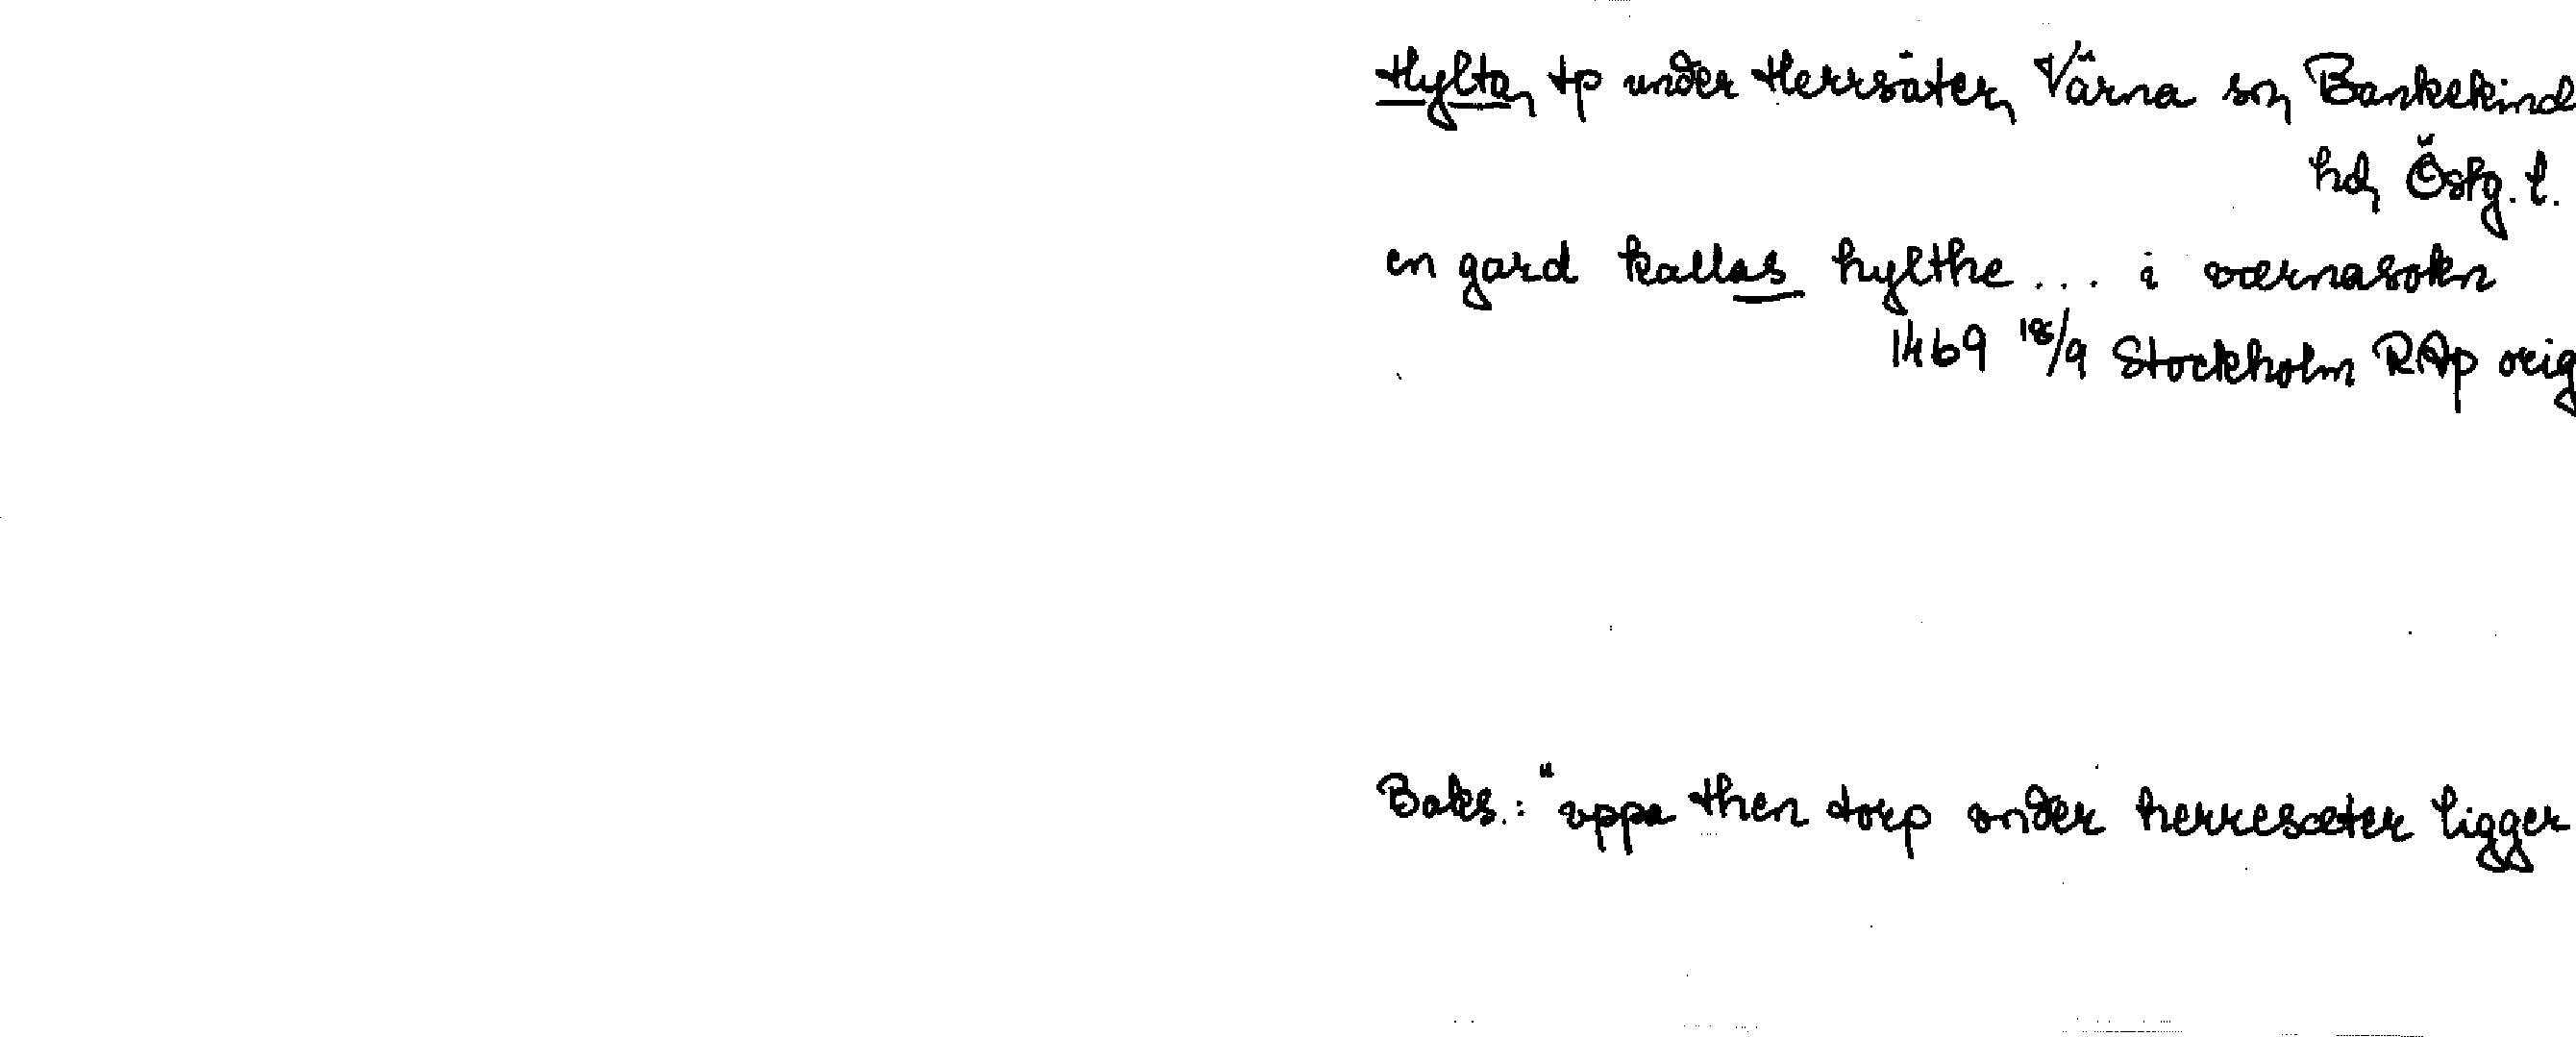 Hylta, tp under Herrsäter, Värna sn, Bankekind
hd, Östg. l.
en gard kallas hylthe ... iværnasokn
1469 18/9 Stockholm RAp orig
Baks.: "vppa then torp vnder herresæter ligger